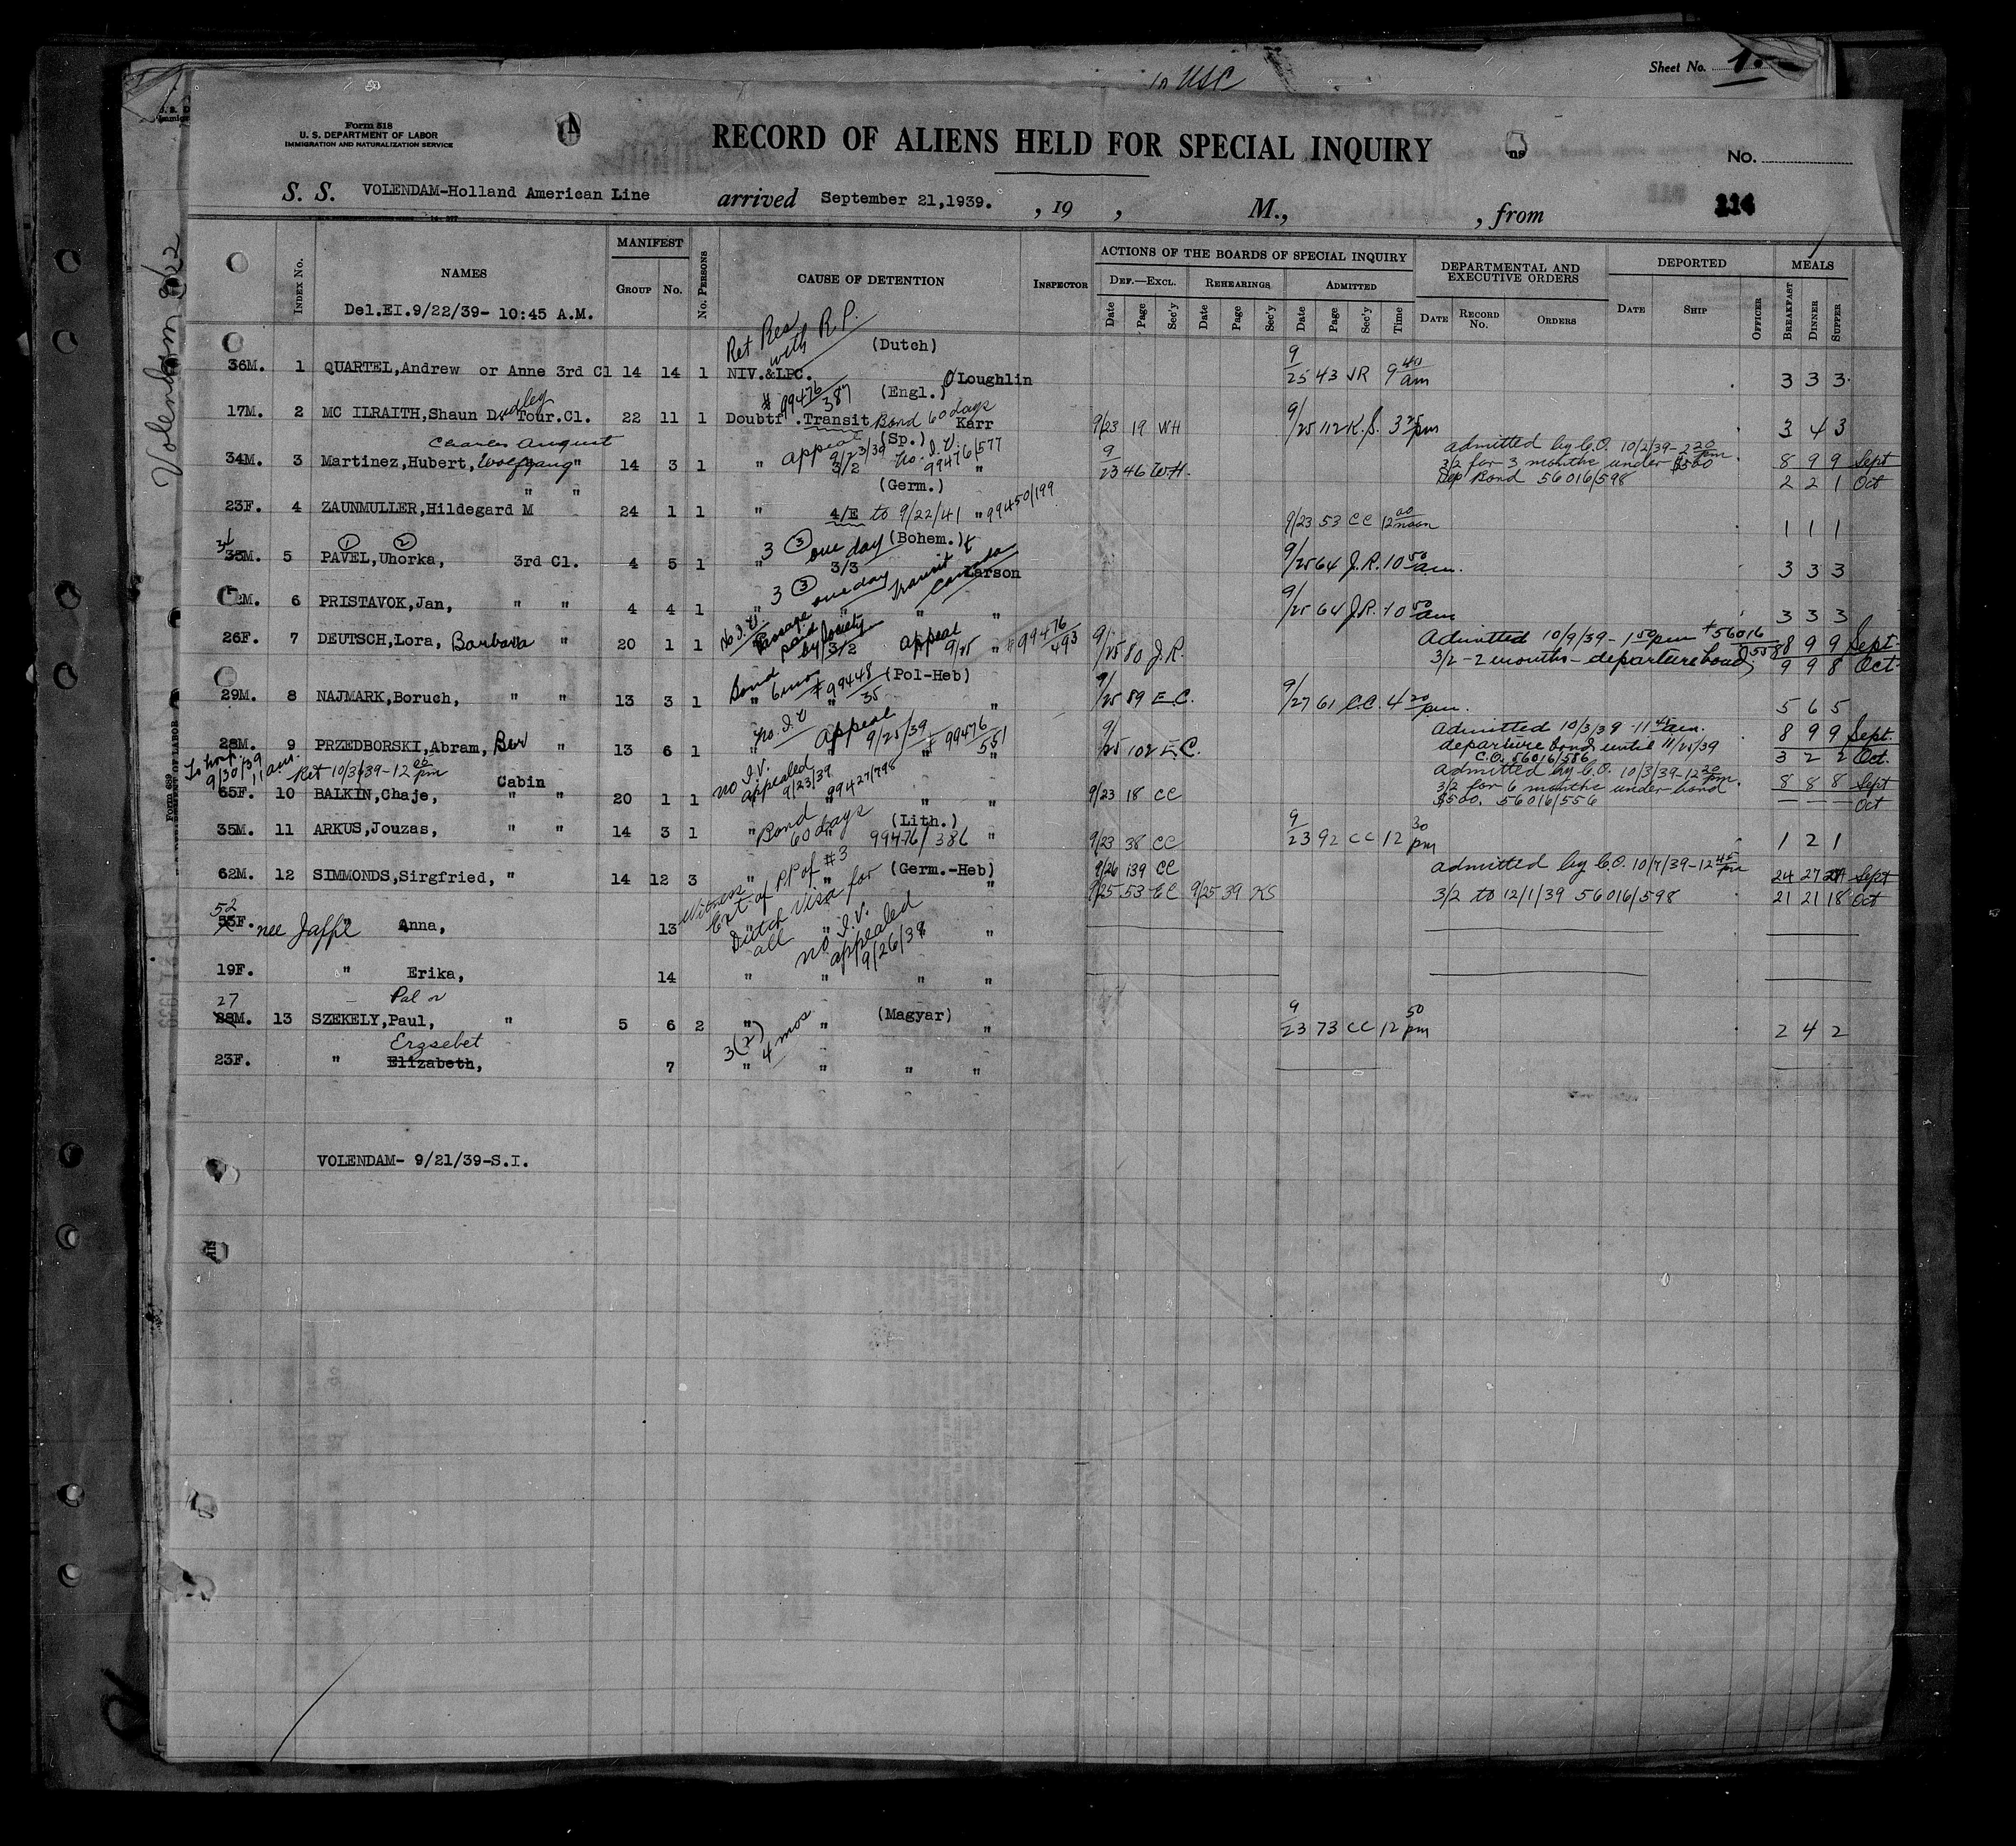 to USC
Sheet No. 1.
Form 518
U. S. DEPARTMENT OF LABOR
IMMIGRATION AND NATURALIZATION SERVICE
RECORD OF ALIENS HELD FOR SPECIAL INQUIRY
No.
S. S. VOLENDAM-Holland American Line arrived September 21,1939. , 19 , M., , from 114
Volendam 9/22
INDEX No. NAMES MANIFEST GROUP No. No. PERSONS CAUSE OF DETENTION INSPECTOR ACTIONS OF THE BOARDS OF SPECIAL INQUIRY DEPARTMENTAL AND EXECUTIVE ORDERS DEPORTED MEALS
DEF.—EXCL. REHEARINGS ADMITTED
Date Page Sec'y Date Page Sec'y Date Page Sec'y Time DATE RECORD No. ORDERS DATE SHIP OFFICER BREAKFAST DINNER SUPPER
Del.EI.9/22/39- 10:45 A.M.
Ret Res with R.P. (Dutch)
36M. 1 QUARTEL,Andrew or Anne 3rd Cl 14 14 1 NIV.&LPC. O'Loughlin 9/25 43 JR 9 40 am 3 3 3
# 99476/387 (Engl.)
17M. 2 MC ILRAITH,Shaun Dudley Tour.Cl. 22 11 1 Doubtf.Transit Bond 60 days Karr 9/23 19 WH 9/25 112 K.S. 3 25 pm 3 4 3
Charles August appeal 9/23/39 (Sp.) No. I.V. 99476/577
34M. 3 Martinez,Hubert,Wolfgang " 14 3 1 " 3/2 " 9/23 46 WH. admitted by C.O. 10/2/39-2 20 pm 3/2 for 3 months under $500 Dep Bond 56016/598 8 9 9 Sept
2 2 1 Oct
" " (Germ.)
23F. 4 ZAUNMULLER,Hildegard M 24 1 1 " 4/E to 9/22/41 " 99450/199 9/23 53 CC 12 00 noon 1 1 1
3 (3) one day (Bohem.)
35M. 5 PAVEL,Uhorka, 3rd Cl. 4 5 1 " 3/3 Larson 9/25 64 J.R. 10 50 am. 3 3 3
3 (3) one day transit Canada
M. 6 PRISTAVOK,Jan, " " 4 4 1 " " " " 9/25 64 J.R. 10 50 am 3 3 3
No I.V. Passage paid by Society
26F. 7 DEUTSCH,Lora, Barbara " 20 1 1 3/2 appeal 9/25 " # 99476/493 9/25 80 J.R. Admitted 10/9/39-1 50 pm # 56016/558 8 9 9 Sept.
3/2 - 2 months - departure bond 9 9 8 Oct.
Bond 6 mos # 99448/35 (Pol-Heb)
29M. 8 NAJMARK,Boruch, " " 13 3 1 " " " 9/25 89 E.C. 9/27 61 C.C. 4 20 pm. 5 6 5
No. I.V appeal 9/25/39 # 99476/551
28M. 9 PRZEDBORSKI,Abram, Ber " 13 6 1 " " " " 9/25 102 E.C. admitted 10/3/39-11 45 am. departure bond until 11/25/39 C.O. 56016/586 8 9 9 Sept.
3 2 2 Oct.
To hosp. 9/30/39 11 am. Ret 10/3/39-12 00 pm Cabin no I.V. appealed 9/23/39 99427/798
65F. 10 BALKIN,Chaje, " " 20 1 1 " " " " 9/23 18 CC admitted by C.O. 10/3/39-12 20 pm. 3/2 for 6 months under bond $500. 56016/556 8 8 8 Sept
— — — Oct
Bond 60 days (Lith.)
35M. 11 ARKUS,Jouzas, " " 14 3 1 " " 99476/386 " 9/23 38 CC 9/23 92 CC 12 30 pm 1 2 1
Witness Ext. of PP of #3 (Germ.-Heb)
62M. 12 SIMMONDS,Sirgfried, " 14 12 3 " " " 9/26 139 CC admitted by C.O. 10/7/39-12 45 pm 24 27 27 Sept
9/25 53 EC 9/25 39 KS 3/2 to 12/1/39 56016/598 21 21 18 Oct
52
53F. nee Jaffe " Anna, 13 Dutch Visa for all " "
no I.V. appealed 9/26/38
19F. " Erika, 14 " " " "
27 Pal or
28M. 13 SZEKELY,Paul, " 5 6 2 " " (Magyar) " 9/23 73 CC 12 50 pm 2 4 2
Erzsebet 3(2) 4 mos
23F. " Elizabeth, 7 " " " "
VOLENDAM- 9/21/39-S.I.
Form 689